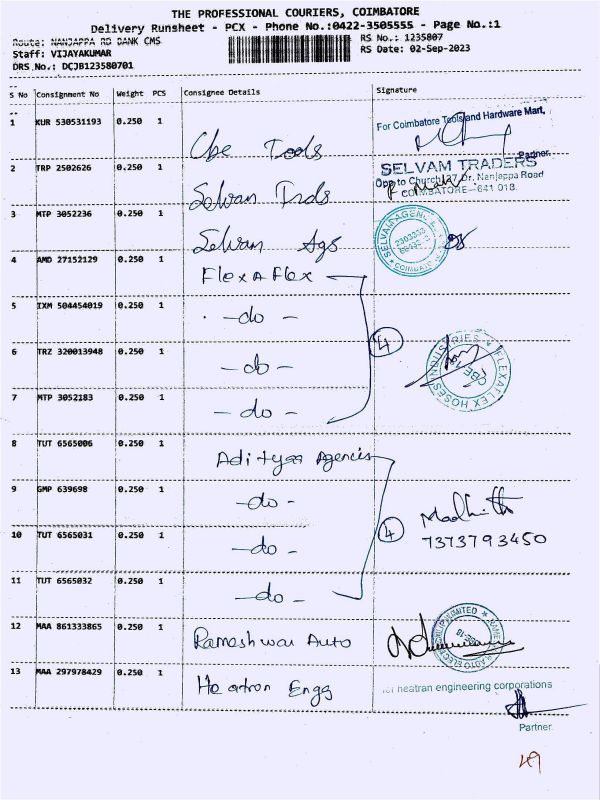 THE PROFESSIONAL COURIERS, COIMBATORE
Delivery Runsheet - PCX - Phone No.:0422-3505555 - Page No.:1
Route: NANJAPPA RD BANK CMS RS No.: 1235807
Staff: VIJAYAKUMAR RS Date: 02-Sep-2023
DRS.No.: DCJB123580701
S No Consignment No Weight PCS Consignee Details Signature
1 KUR 530531193 0.250 1 Cbe Tools For Coimbatore Tools and Hardware Mart,
Partner.
2 TRP 2502626 0.250 1 Selvan Trds SELVAM TRADERS
Opp to Church 37 Dr. Nanjappa Road
COIMBATORE-641 018.
3 MTP 3052236 0.250 1 Selvan Ags SELVAM AGENC COIMBATO
4 AMD 27152129 0.250 1 Flex A Flex
5 IXM 504454019 0.250 1 -do-
4
6 TRZ 320013948 0.250 1 -do- FLEXAFLEX HOSES INDUSTRIES CBE
7 MTP 3052183 0.250 1 -do-
8 TUT 6565006 0.250 1 Adityaa Agencis
9 GMP 639698 0.250 1 -do-
4 Madhith
10 TUT 6565031 0.250 1 -do- 7373793450
11 TUT 6565032 0.250 1 -do-
12 MAA 861333865 0.250 1 Rameshwar Auto
13 MAA 297978429 0.250 1 Heatron Engg For heatran engineering corporations
Partner.
49